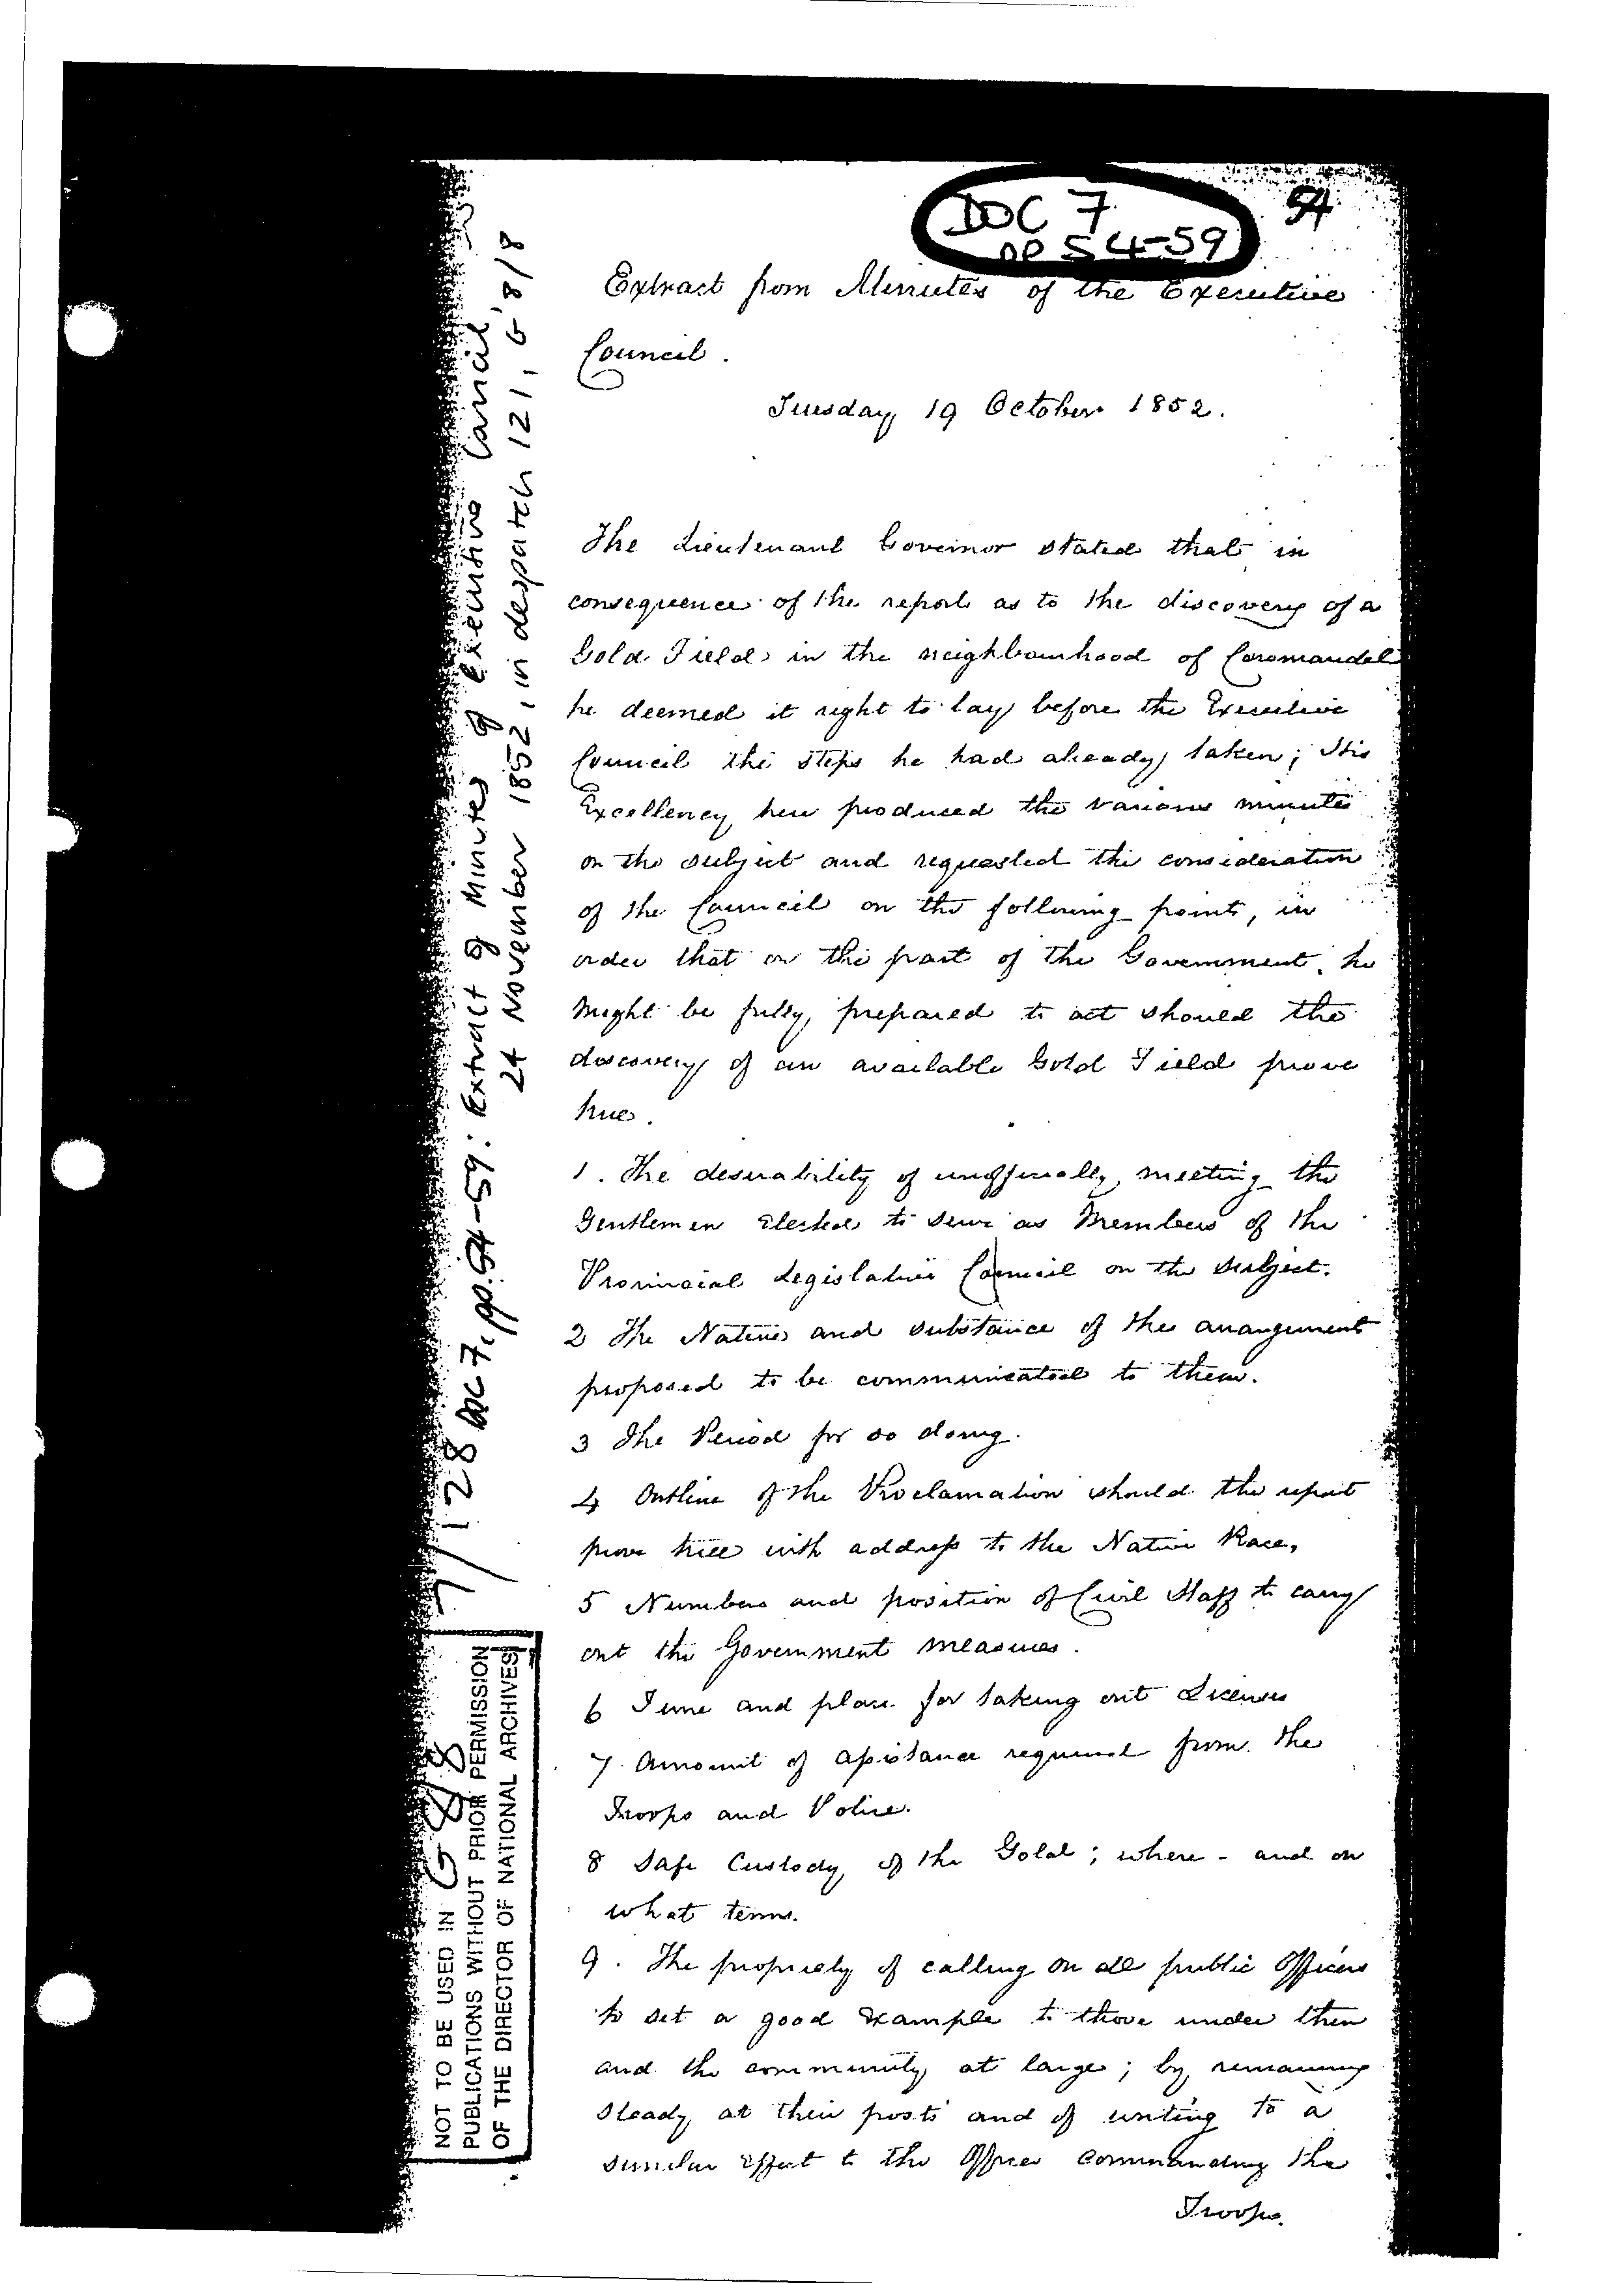 DOC 7
pp 54-59
54
Extract from Minutes of the Executive
Council.
Tuesday 19 October 1852.
The Lieutenant Governor stated that in
consequence of the report as to the discovery of a
Gold Field in the neighbourhood of Coromandel
he deemed it right to lay before the Executive
Council the steps he had already taken; His
Excellency here produced the various minutes
on the subject and requested the consideration
of the Council on the following points, in
order that on the part of the Government he
might be fully prepared to act should the
discovery of an available Gold Field prove
true.
1. The desirability of unofficially meeting the
Gentlemen elected to serve as Members of the
Provincial Legislative Council on the subject.
2 The Nature and substance of the arrangement
proposed to be communicated to them.
3 The Period for so doing.
4 Outline of the Proclamation should the report
prove true with address to the Native Race,
5 Numbers and position of Civil Staff to carry
out the Government measures.
6 Time and place for taking out Licenses
7. Amount of assistance required from the
Troops and Police.
8 Safe Custody of the Gold; where - and on
what terms.
9. The propriety of calling on all public Officers
to set a good example to those under them
and the community at large; by remaining
steady at their posts and of writing to a
similar effect to the Officer Commanding the
Troops.
7/128 DOC 7, pp. 54-59: Extract of Minutes of Executive Council
24 November 1852, in despatch 121, G 8/8
G 8/8
NOT TO BE USED IN
PUBLICATIONS WITHOUT PRIOR PERMISSION
OF THE DIRECTOR OF NATIONAL ARCHIVES